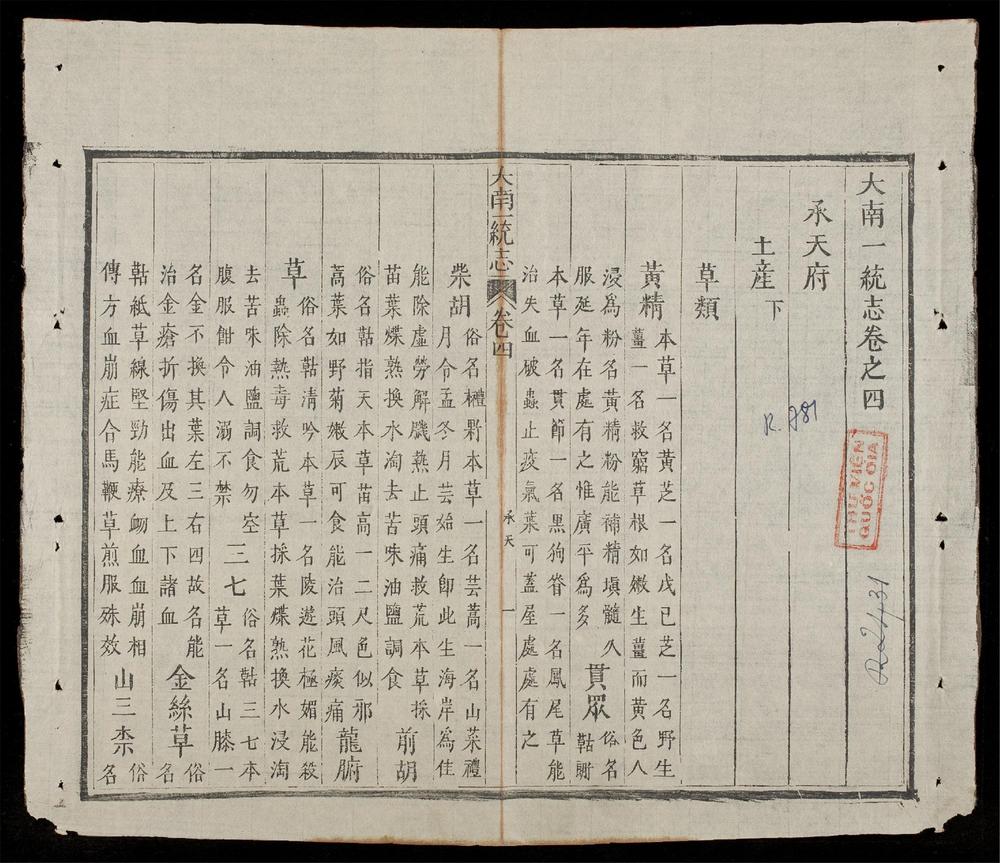 大南一統志卷之四
承天府
土産下
草類
黃精 本草一名黃芝一名戊己芝一名野生
薑一名救窮草根如嫩生薑而黃色人
浸爲粉名黃精粉能補精塡髓久
服延年在處有之惟廣平爲多
貫眾 俗名
本草一名貫節一名黑狗脊一名鳳尾草能
治失血破蟲止疫氣葉可蓋屋處處有之
大南一統志
卷四
承天
一
柴胡 俗名 本草一名芸蒿一名山菜禮
月令孟冬月芸始生卽此生海岸爲佳
能除虛勞解饑熱止頭痛救荒本草採
苗葉煠熟換水淘去苦味油鹽調食
前胡
俗名䓶指天本草苗高一二尺色似邪
蒿葉如野菊嫩辰可食能治頭風痰痛
龍膽
草 俗名䓶清吟本草一名陵遊花極媚能殺
蟲除熱毒救荒本草採葉煠熟換水浸淘
去苦味油鹽調食勿空
腹服餌令人溺不禁
三七 俗名䓶三七本
草一名山膝一
名金不換其葉左三右四故名能
治金瘡折傷出血及上下諸血
金絲草 俗
名
䓶紙草線堅勁能療衂血血崩相
傳方血崩症合馬鞭草煎服殊效
山三柰 俗
名
R. 781
THƯ VIỆN
QUỐC GIA
R.2431